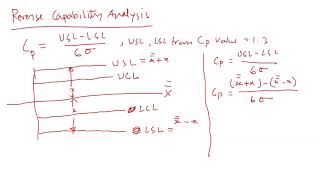 Reverse Capability Analysis
Cp = USL-LSL / 6σ , USL, LSL from Cp value = 1.3
USL = x̿+x
UCL
x̿
LCL
LSL = x̿-x
x
x
Cp = USL-LSL / 6σ
Cp = (x̿+x)-(x̿-x) / 6σ